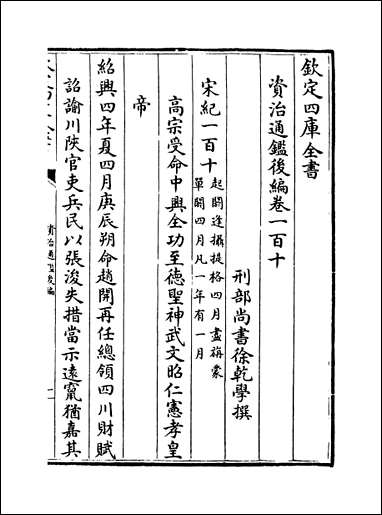 欽定四庫全書
資治通鑑後編卷一百十
刑部尚書徐乾學撰
宋紀一百十
起閼逢攝提格四月盡旃蒙
單閼四月凡一年有一月
高宗受命中興全功至德聖神武文昭仁憲孝皇
帝
紹興四年夏四月庚辰朔命趙開再任總領四川財賦
詔諭川陜官吏兵民以張浚失措當示遠竄猶嘉其
資治通鑑後編